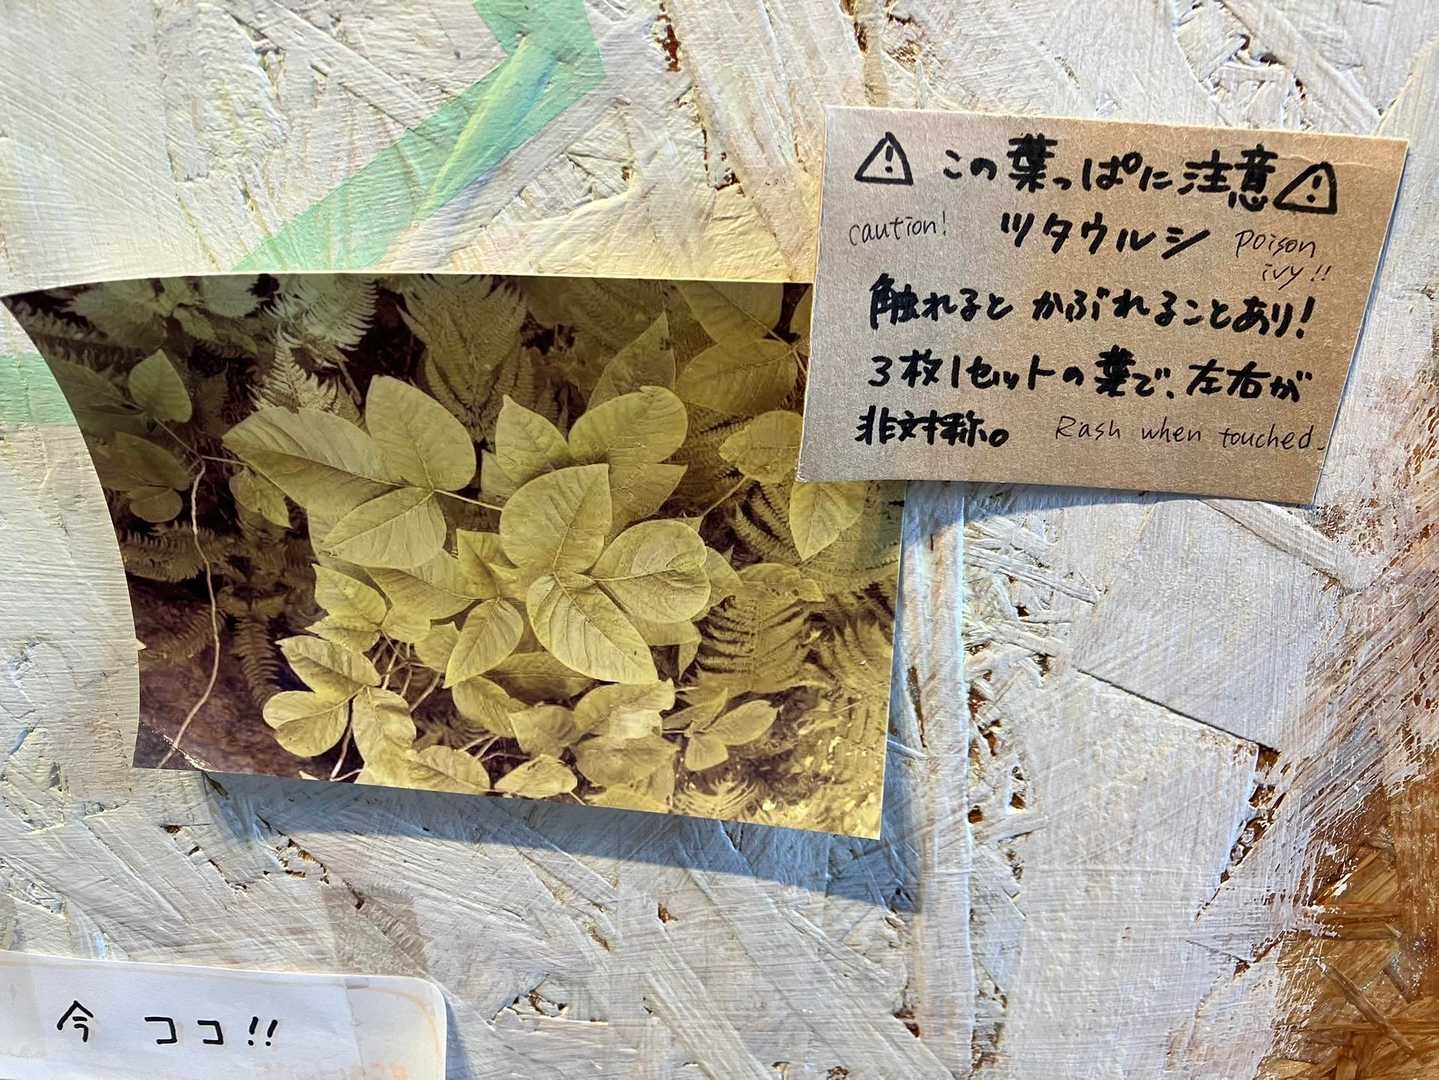 ⚠この葉っぱに注意⚠
caution! ツタウルシ poison
ivy!!
触れると かぶれることあり!
3枚1セットの葉で、左右が
非対称。 Rash when touched.
今 ココ!!